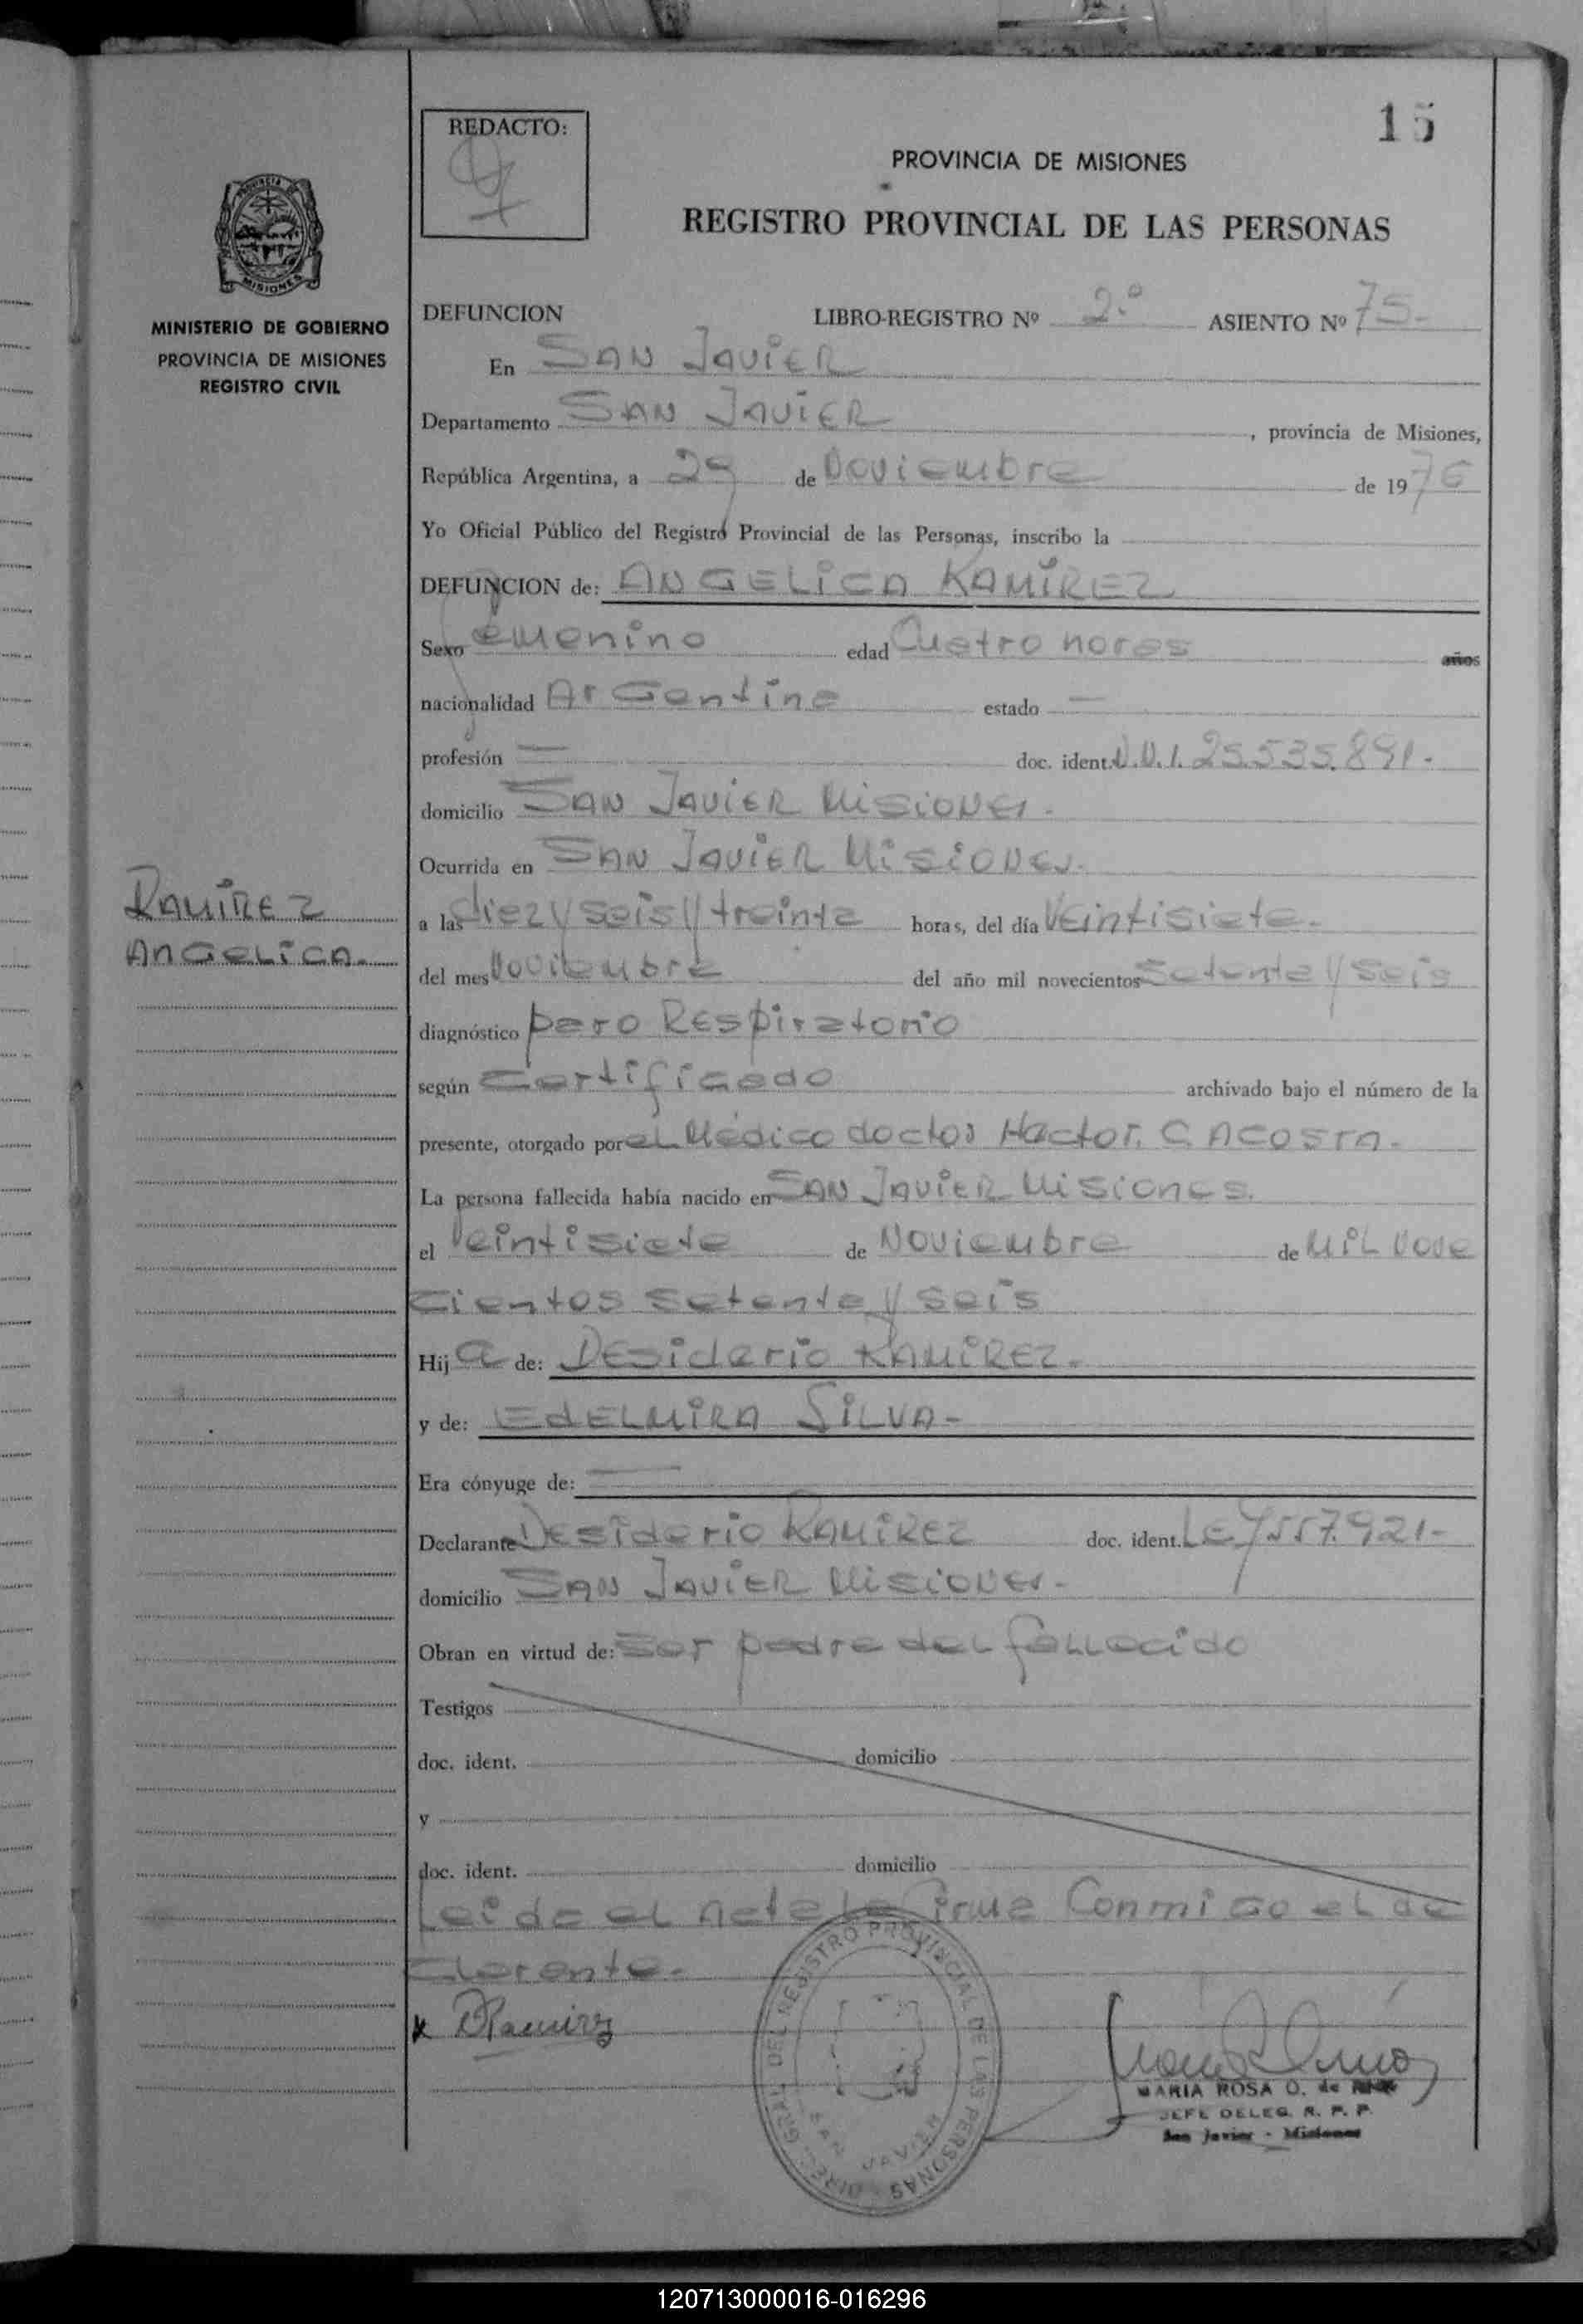 15
REDACTO:
PROVINCIA DE MISIONES
REGISTRO PROVINCIAL DE LAS PERSONAS
PROVINCIA DE
MISIONES
MINISTERIO DE GOBIERNO
PROVINCIA DE MISIONES
REGISTRO CIVIL
RAMIREZ
ANGELICA.
DEFUNCION LIBRO-REGISTRO Nº 2º ASIENTO Nº 75-
En SAN JAVIER
Departamento SAN JAVIER, provincia de Misiones,
República Argentina, a 29 de Noviembre de 1976
Yo Oficial Público del Registro Provincial de las Personas, inscribo la
DEFUNCION de: ANGELICA RAMIREZ
Sexo femenino edad Cuatro horas años
nacionalidad Argentina estado —
profesión — doc. ident. D.N.I. 25.535.891.-
domicilio SAN JAVIER Misiones.-
Ocurrida en SAN JAVIER Misiones.
a las diez y seis y treinta horas, del día Veintisiete.
del mes Noviembre del año mil novecientos setenta y seis
diagnóstico paro Respiratorio
según Certificado archivado bajo el número de la
presente, otorgado por el Médico doctor Hector. C. ACOSTA.-
La persona fallecida había nacido en SAN JAVIER Misiones.
el Veintisiete de Noviembre de Mil Nove
cientos setenta y seis
Hija de: Desiderio RAMIREZ.
y de: EDELMIRA SILVA-
Era cónyuge de: —
Declarante Desiderio RAMIREZ doc. ident. LE 7557.921-
domicilio SAN JAVIER Misiones.-
Obran en virtud de: Ser padre del fallecido
Testigos
doc. ident. domicilio
y
doc. ident. domicilio
Leida el acta la firma Conmigo el de
clarante.-
x DRamirez
DIREC. GRAL. DEL REGISTRO PROVINCIAL DE LAS PERSONAS
SAN JAVIER
MARIA ROSA O. de
JEFE DELEG. R. P. P.
San Javier - Misiones
120713000016-016296